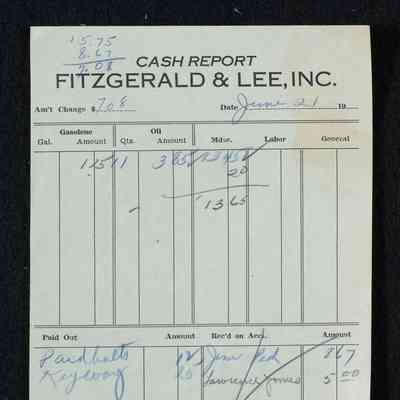 15.75
8.67
7.08
CASH REPORT
FITZGERALD & LEE, INC.
Am't Change $ 7 0 8 Date June 21 19
Gasolene Oil
Gal. Amount Qts. Amount Mdse. Labor General
1 15 11 3 85
20
13 65
Paid Out Amount Rec'd on Acc. Amount
12 Jim 8 67
Keyway 25 Lawrence Jones 5 00